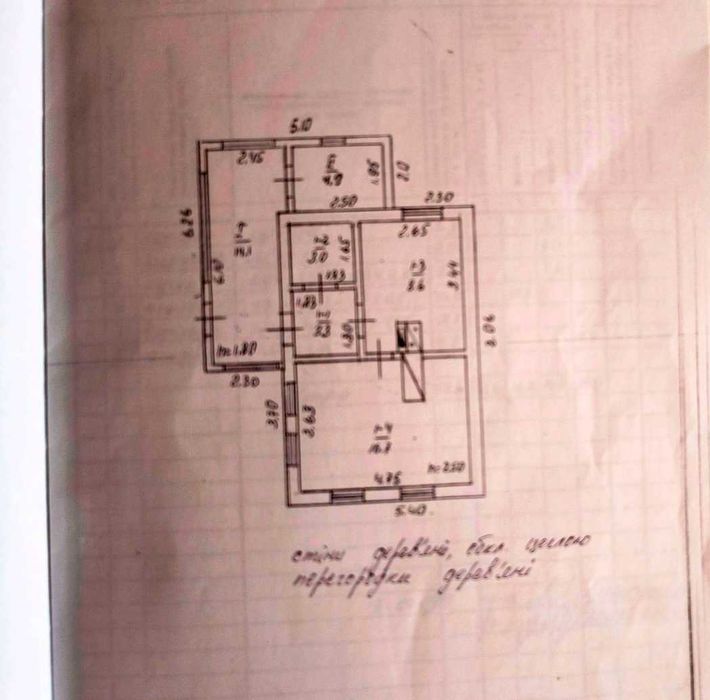 5.10
2.45
4.9
1.95
2.0
2.50
2.30
6.26
I
14.1
6.10
1-2
3.0
1.65
1.83
2.65
1-3
8.6
3.44
1.83
1-1
1.80
8.06
h=1.80
2.30
3.70
3.63
1-4
16.7
h=2.50
4.75
5.40
стіни дерев'яні, обкл. цеглою
перегородки дерев'яні